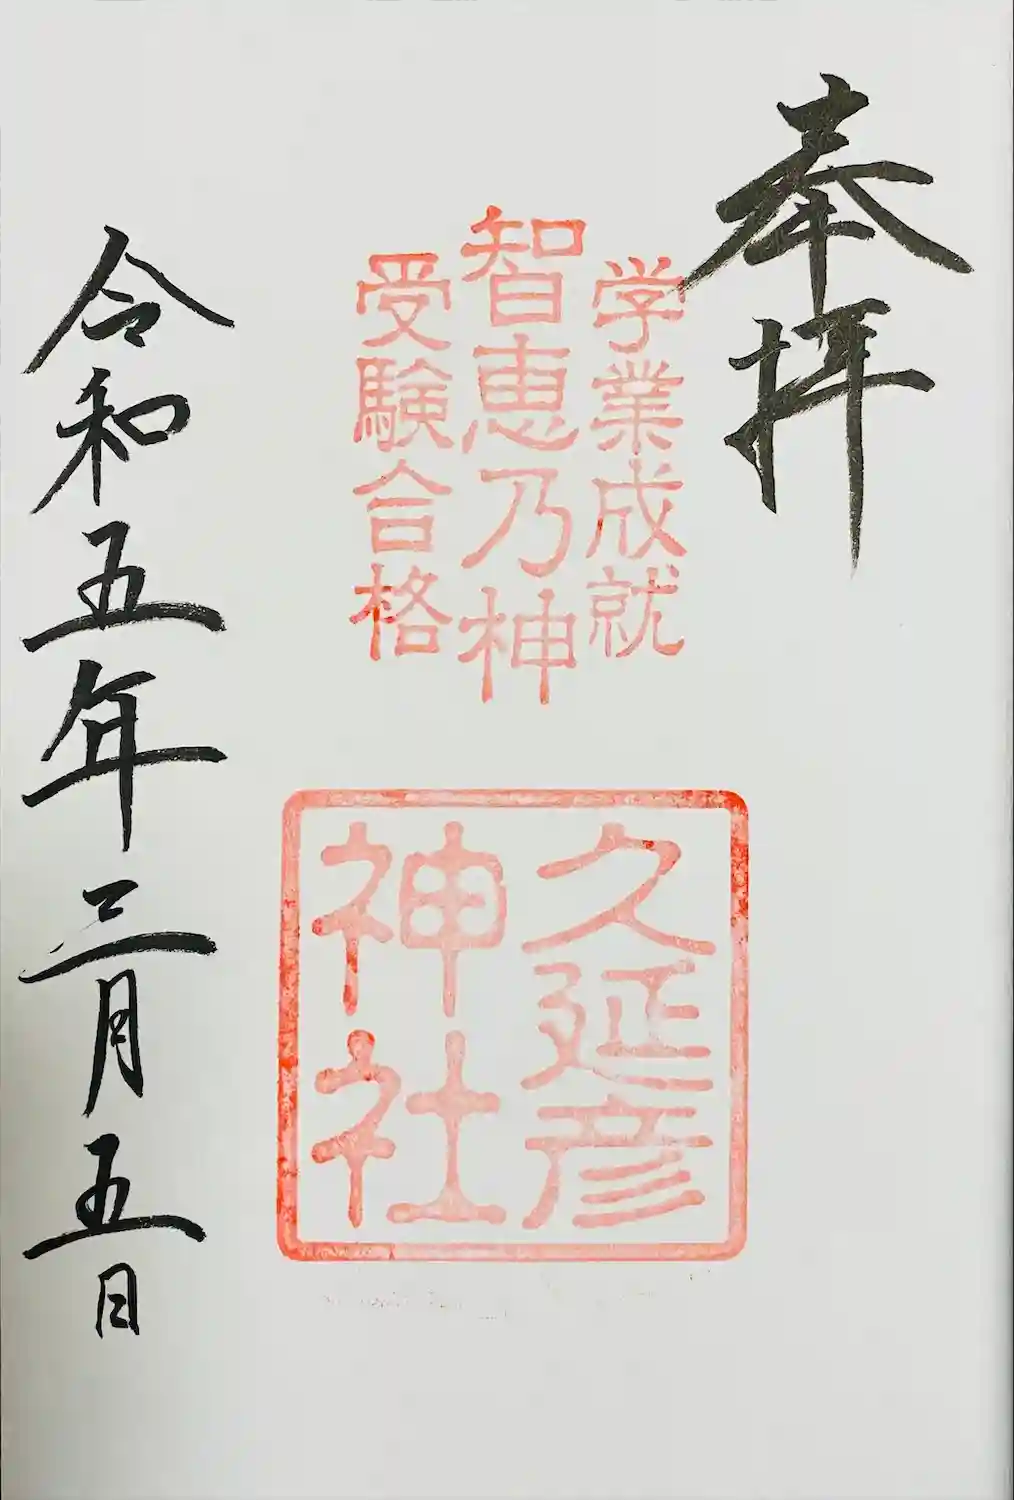 奉拝
学業成就
智恵乃神
受験合格
久延彦
神社
令和五年三月五日